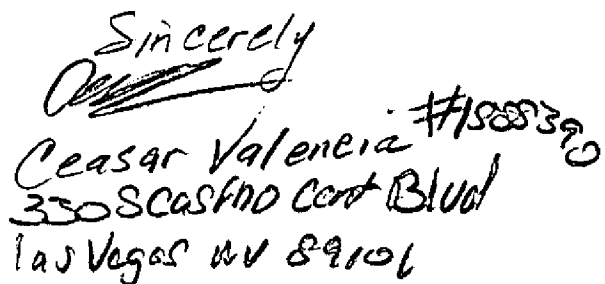 Sincerely
Ceasar Valencia #1588390
330 S Casino Cent Blvd
las Vegas NV 89101